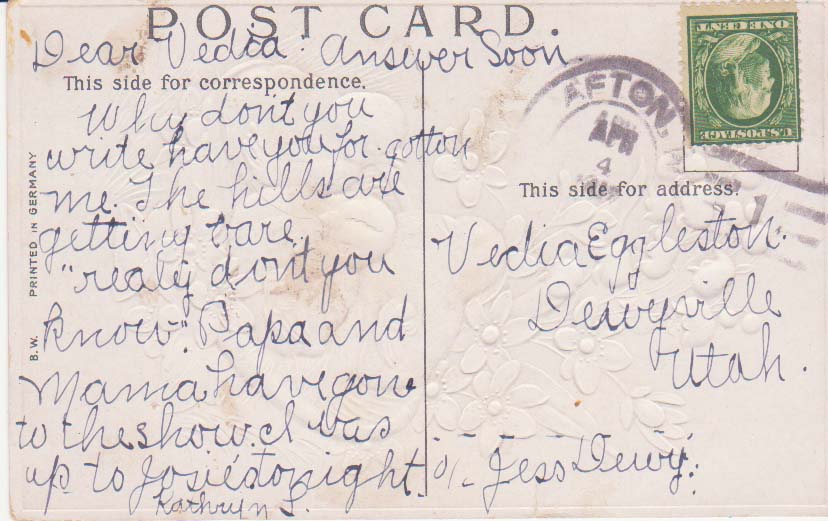 POST CARD.
Dear Vedia. Answer Soon.
This side for correspondence.
Why dont you
write have you for-gotton
me. The hills are
getting bare.
"realy dont you
know". Papa and
Mama have gone
to the show. I was
up to Josie's tonight.
Kathryn
B.W. PRINTED IN GERMANY
ONE CENT
U.S. POSTAGE
AFTON,
APR
4
This side for address.
Vedia Eggleston.
Dewyville
Utah.
℅ Jess Dewy.